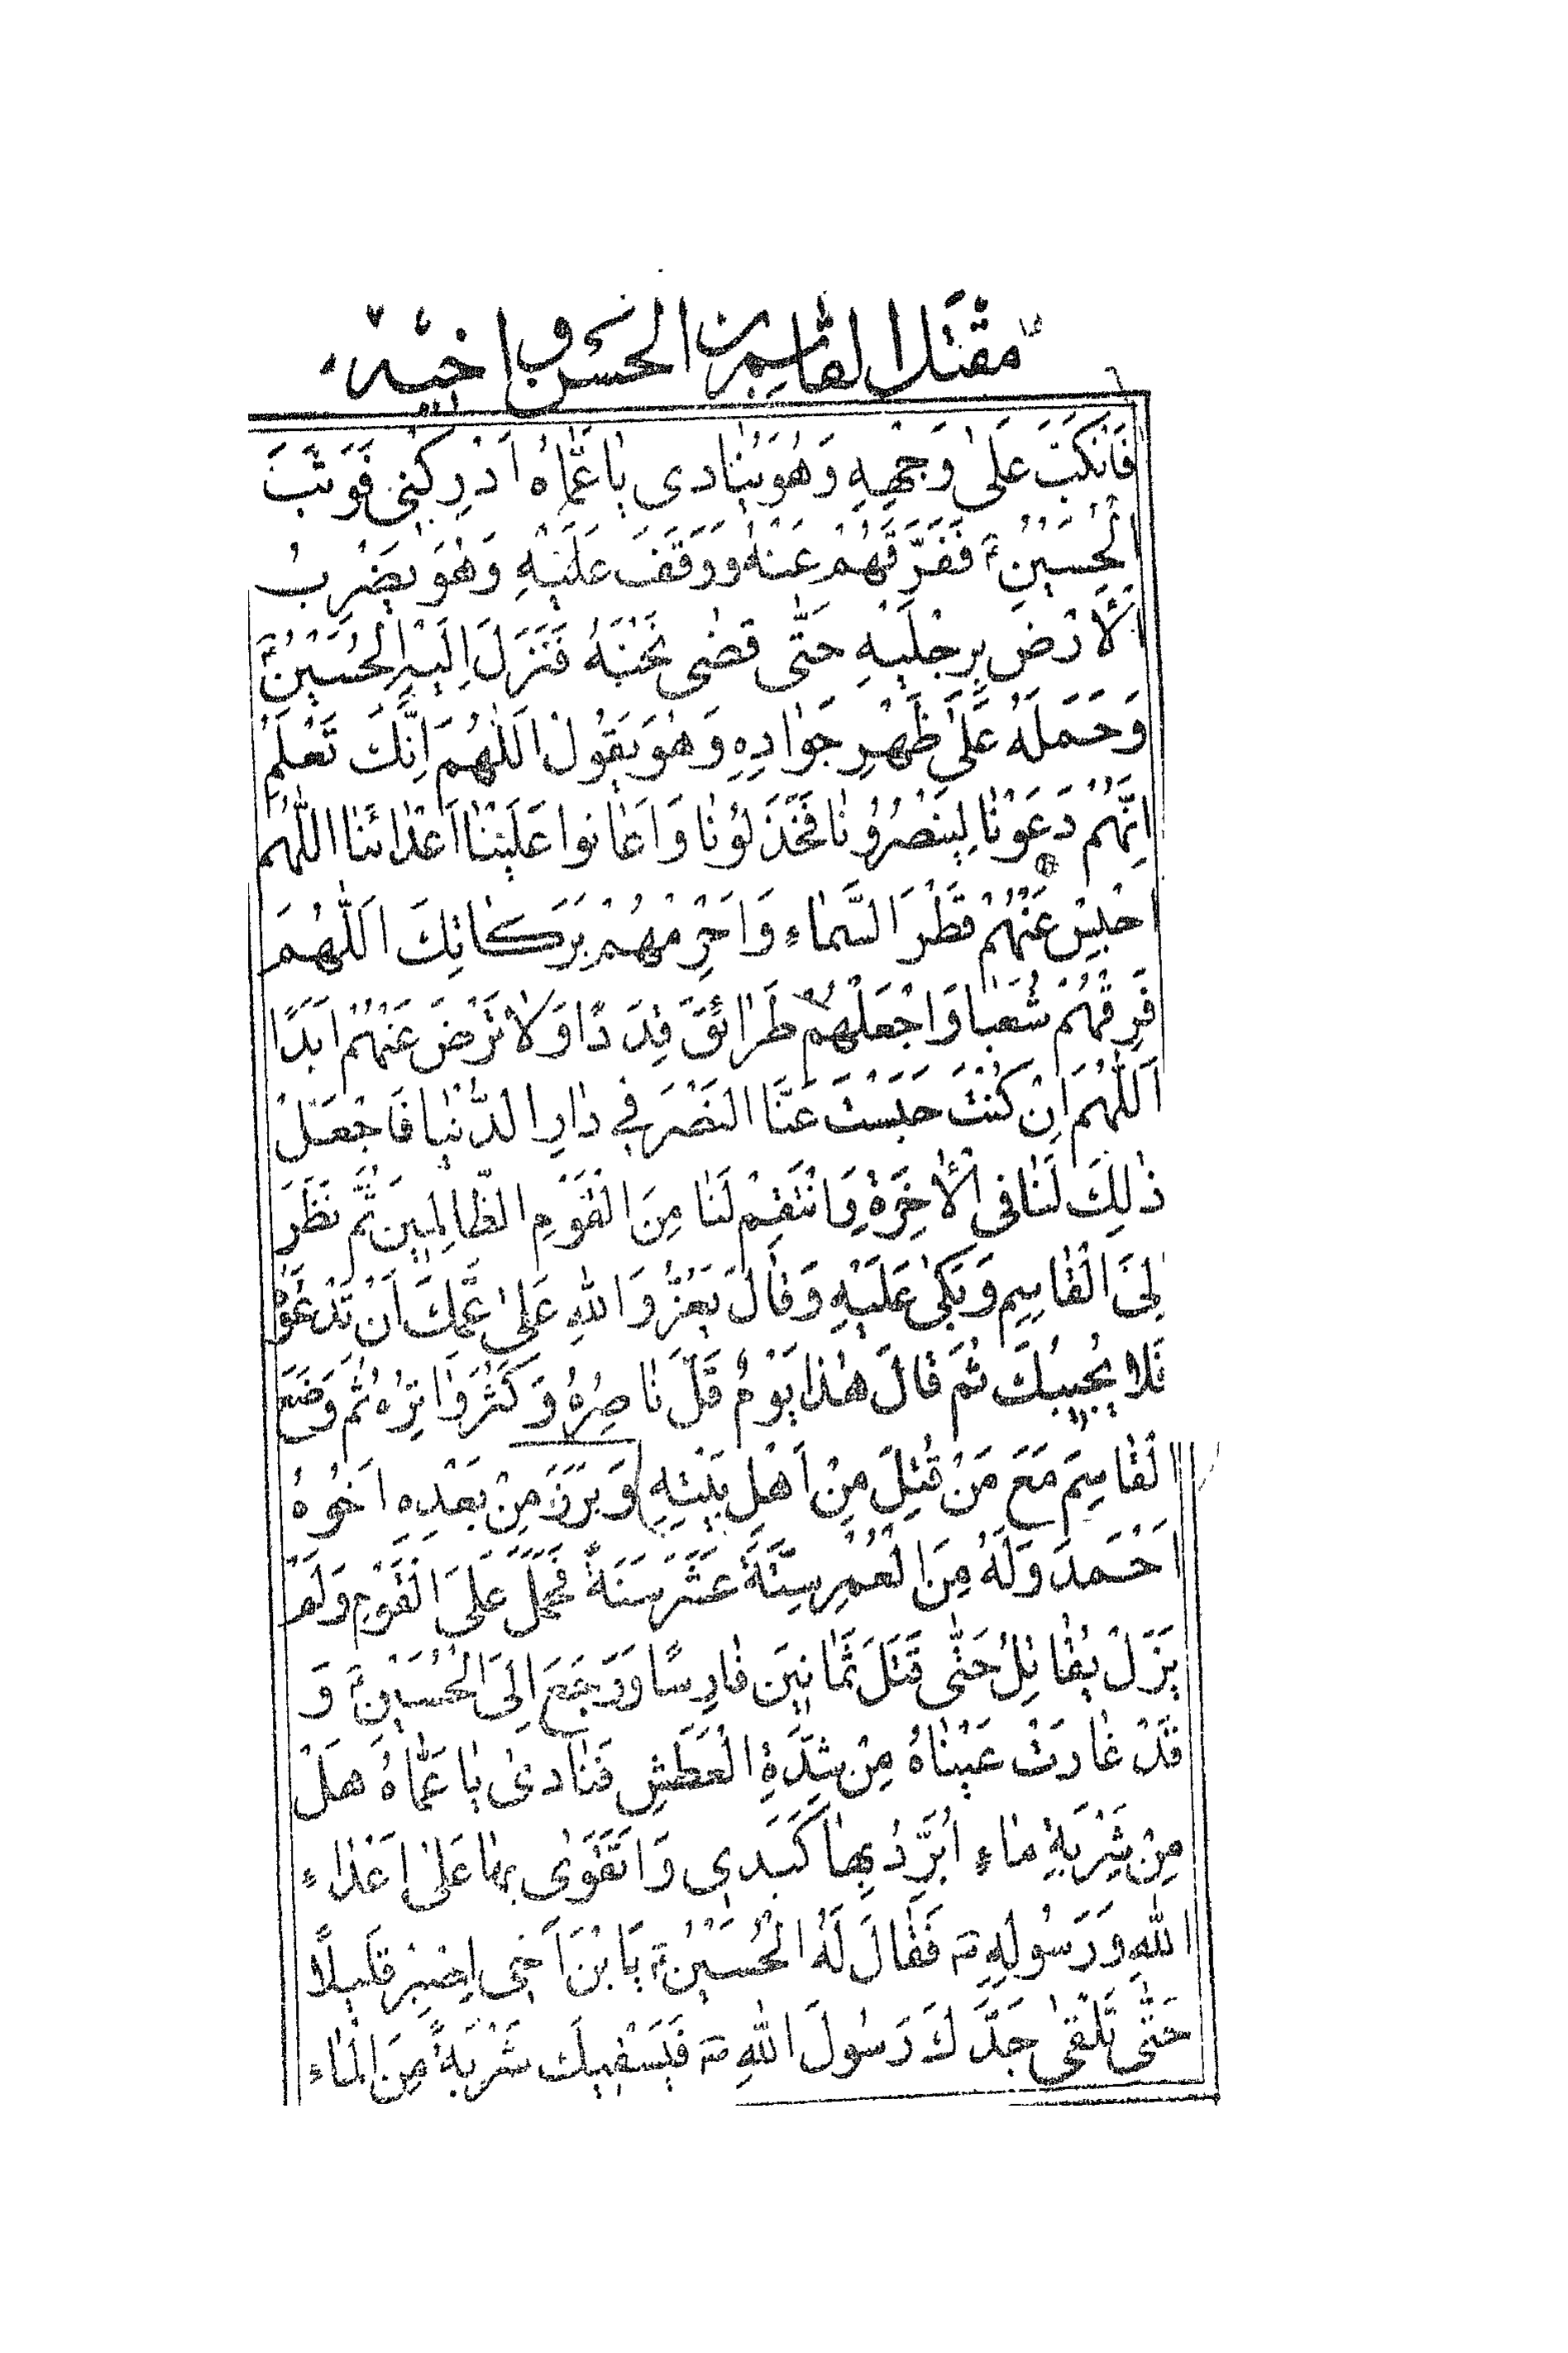 مقتل القاسم بن الحسن و اخيه
فَانْكَبَّ عَلىٰ وَجْهِهِ وَهُوَ يُنٰادى يٰا عَمّٰاهُ اَدْرِكْنى فَوَثَبَ
الْحُسَيْنِ ع فَفَرَّقَهُمْ عَنْهُ وَوَقَفَ عَلَيْهِ وَهُوَ يَضْرِبُ
الْاَرْضَ بِرِجْلَيْهِ حَتّٰى قَضٰى نَحْبَهُ فَنَزَلَ اِلَيْهِ الْحُسَيْنُ ع
وَحَمَلَهُ عَلٰى ظَهْرِ جَوٰادِهِ وَهُوَ يَقُولُ اَللّٰهُمَّ اِنَّكَ تَعْلَمُ
اِنَّهُمْ دَعَوْنٰا لِيَنْصُرُونٰا فَخَذَلُونٰا وَاَعٰانوا عَلَيْنٰا اَعْدٰائَنٰا اللّٰهُمَّ
احْبِسْ عَنْهُمْ قَطْرَ السَّمٰاءِ وَاَحْرِمْهُمْ بَرَكٰاتِكَ اَللّٰهُمَّ
فَرِقْهُمْ شُعَبٰا وَاجْعَلْهُمْ طَرٰائِقَ قِدَدًا وَلٰا تَرْضَ عَنْهُمْ اَبَدًا
اَللّٰهُمَّ اِنْ كُنْتَ حَبَسْتَ عَنَّا النَصْرَ فى دٰارِ الدُّنْيٰا فَاجْعَلْ
ذٰلِكَ لَنٰا فى الْاٰخِرَةِ وَانْتَقِمْ لَنٰا مِنَ الْقَوْمِ الظّٰالِمينَ ثُمَّ نَظَرَ
اِلىَ الْقٰاسِمِ وَبَكىٰ عَلَيْهِ وَقٰالَ يَعُزُّ وَاللّٰهِ عَلىٰ عَمِّكَ اَنْ تَدْعُوَهُ
فَلا يُجيبُكَ ثُمَّ قٰالَ هٰذٰا يَوْمٌ قَلَّ نٰاصِرُهُ وَكَثُرَ وٰاتِرُهُ ثُمَّ وَضَعَ
الْقٰاسِمَ مَعَ مَنْ قُتِلَ مِنْ اَهْلِ بَيْتِهِ وَبَرَزَ مِنْ بَعْدِهِ اَخُوهُ
اَحْمَدَ وَلَهُ مِنَ الْعُمْرِ سِتَّةَ عَشَرَ سَنَةً فَحَمَلَ عَلَى الْقَوْمِ وَلَمْ
يَزَلْ يُقٰاتِلُ حَتّٰى قَتَلَ ثَمٰانينَ فٰارِسًا وَرَجَعَ اِلىَ الْحُسَيْنِ ع وَ
قَدْ غٰارَتْ عَيْنٰاهُ مِنْ شِدَّةِ الْعَطَشِ فَنٰادىٰ يٰا عَمّٰاهُ هَلْ
مِنْ شَرْبَةِ مٰاءٍ اُبَرِّدُ بِهٰا كَبَدى وَاَتَقَوّىٰ بِهٰا عَلىٰ اَعْدٰاءِ
اللهِ وَرَسُولِهِ ص فَقٰالَ لَهُ الْحُسَيْنُ ع يَا بْنَ اَخى اِصْبِرْ قَليلًا
حَتّٰى تَلْقىٰ جَدَّكَ رَسُولَ اللهِ ص فَيَسْقيكَ شَرْبَةً مِنَ الْمٰاءِ